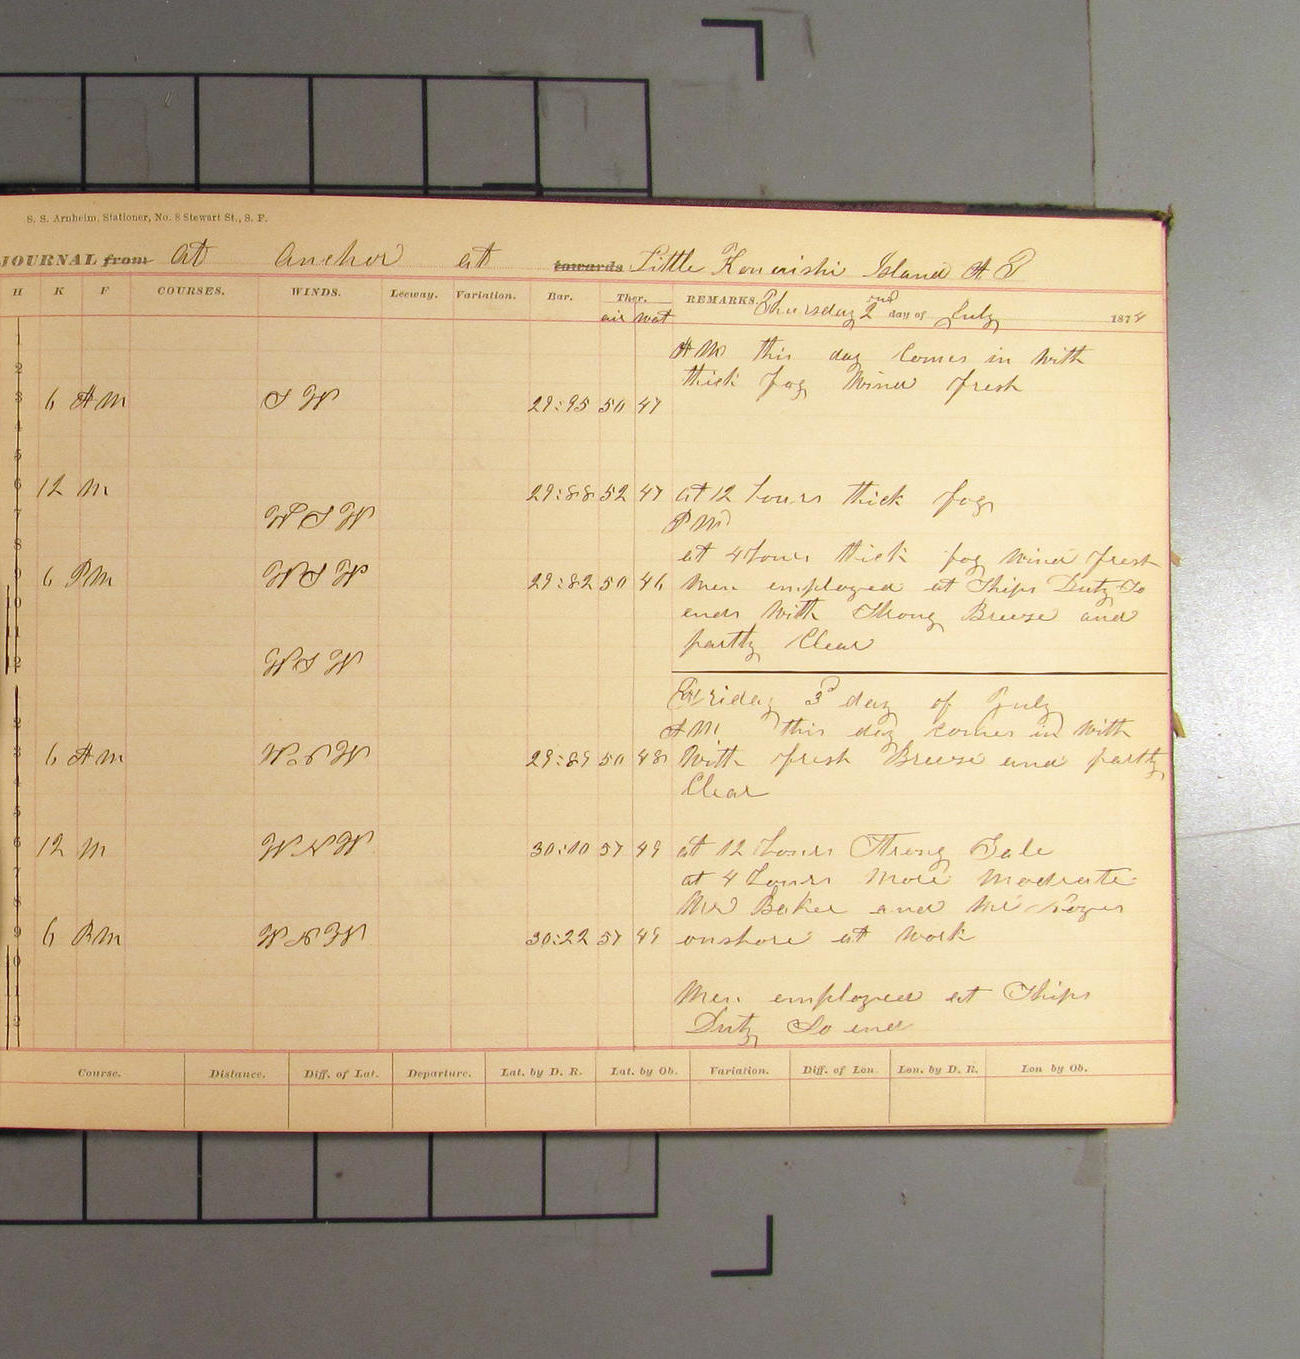 S. S. Arnheim, Stationer, No. 8 Stewart St., S. F.
JOURNAL from at anchor at towards Little Koniushi Island A T
H K F COURSES. WINDS. Leeway. Variation. Bar. Ther. REMARKS. Thursday 2nd day of July 1874
air wat
1
A M this day Comes in With
2
thick fog Wind fresh
3 6 A M S W 29:95 50 47
4
5
6 12 M 29:88 52 47 at 12 hours thick fog
7 W S W P M
8 at 4 hours thick fog Wind fresh
9 6 P M W S W 29:82 50 46 Men employed at Ships Duty So
10 ends With Strong Breese and
11 partly Clear
12 W S W
Friday 3d day of July
2 A M this day comes in With
3 6 A M W N W 29:89 50 48 With fresh Breese and partly
4 Clear
5
6 12 M W N W 30:10 57 49 at 12 hours Strong Gale
7 at 4 hours More Moderate
8 Mr Baker and Mr
9 6 P M W N W 30:22 57 49 onshore at Work
10
11 Men employed at Ships
12 Duty So end
Course. Distance. Diff. of Lat. Departure. Lat. by D. R. Lat. by Ob. Variation. Diff. of Lon. Lon. by D. R. Lon by Ob.